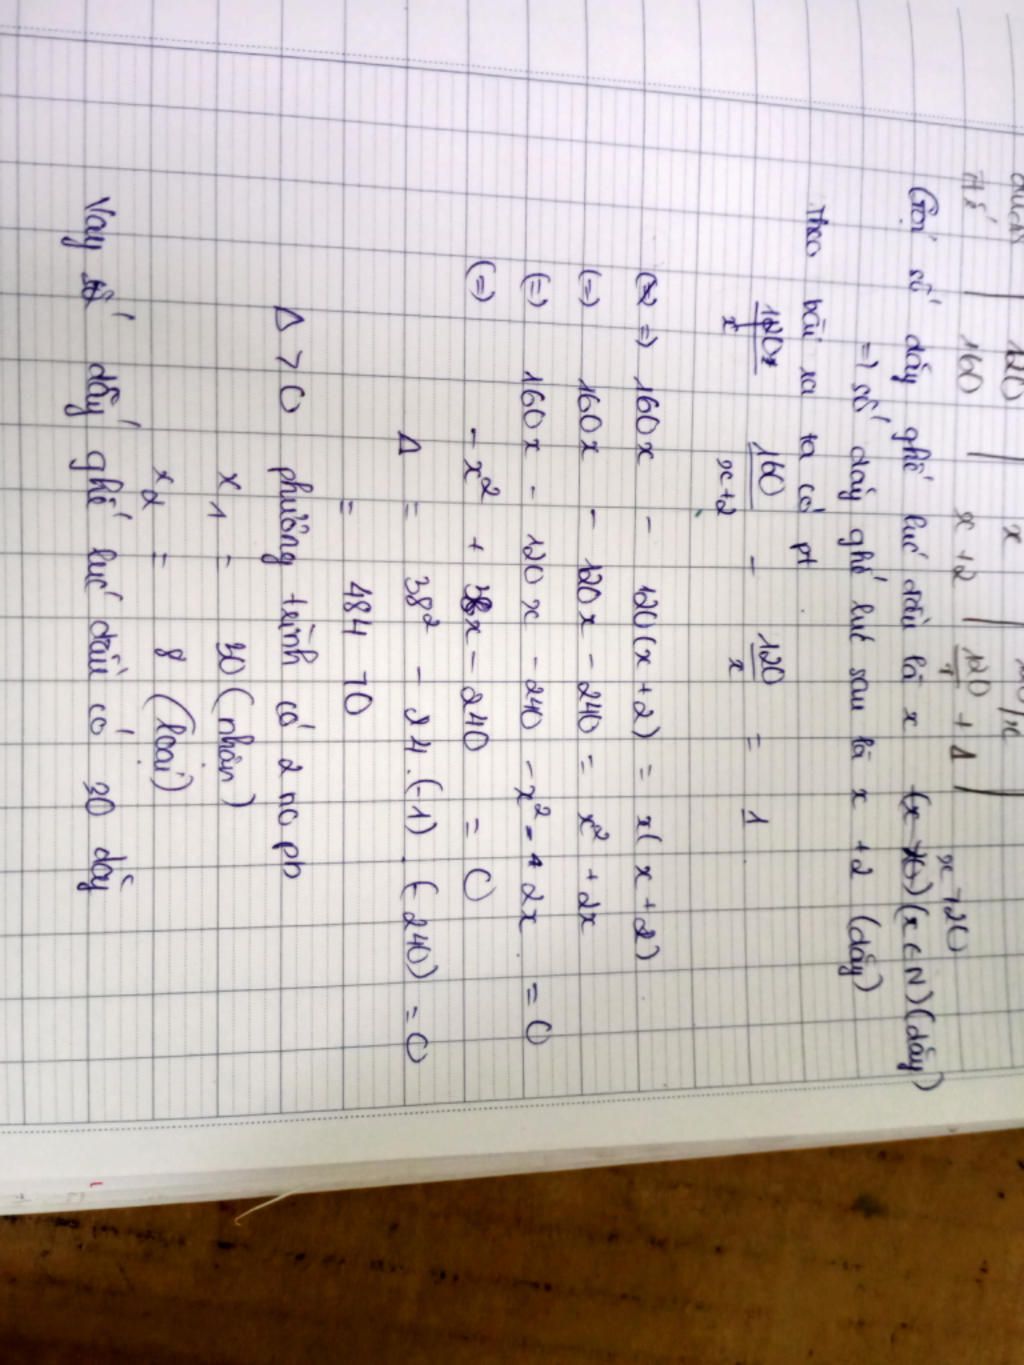 120 | x | 120/x
160 | x + 2 | 120/x + 1 |
x > 20
Gọi số dãy ghế lúc đầu là x (x ∈ N) (dãy)
=) số dãy ghế lúc sau là x + 2 (dãy)
Theo bài ra ta có pt
160/x+2 - 120/x = 1
(=) 160x - 120(x+2) = x(x+2)
(=) 160x - 120x - 240 = x² + 2x
(=) 160x - 120x - 240 - x² - 2x = 0
(=) -x² + 38x - 240 = 0
Δ = 38² - 4.(-1).(-240) = 0
= 484 > 0
Δ > 0 phương trình có 2 no pb
x1 = 30 (nhận)
x2 = 8 (loại)
Vậy số dãy ghế lúc đầu có 30 dãy